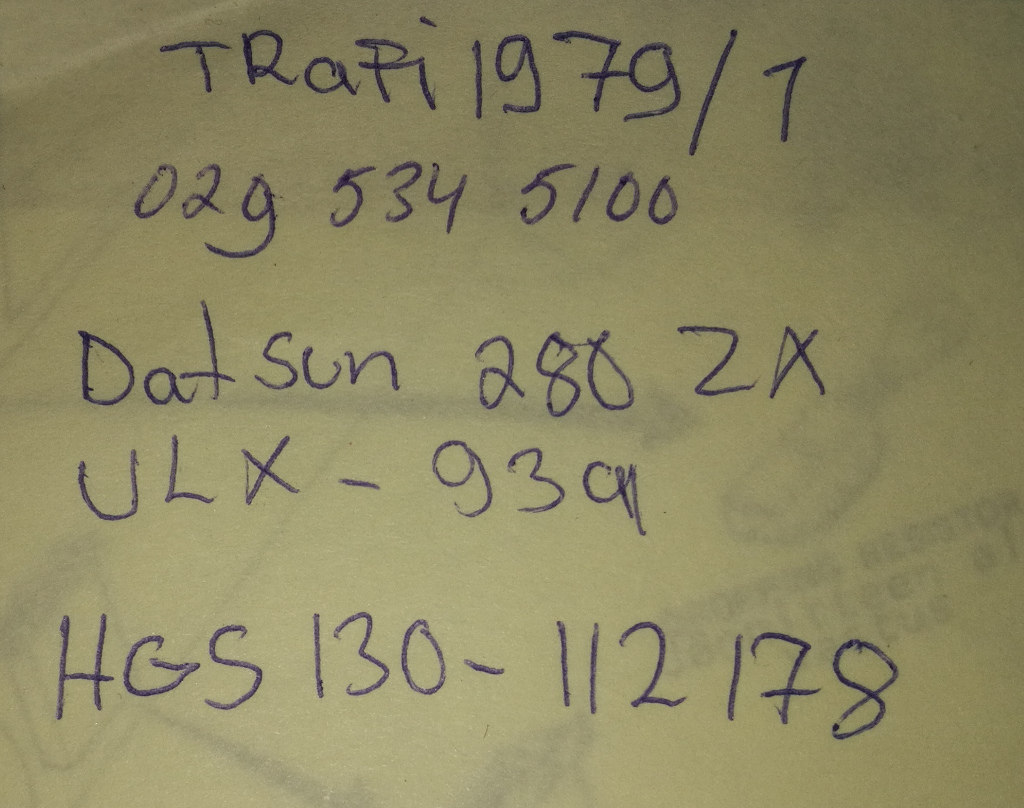 TRaFi 1979/1
029 534 5100
Datsun 280 ZX
ULX - 939
HGS 130 - 112178